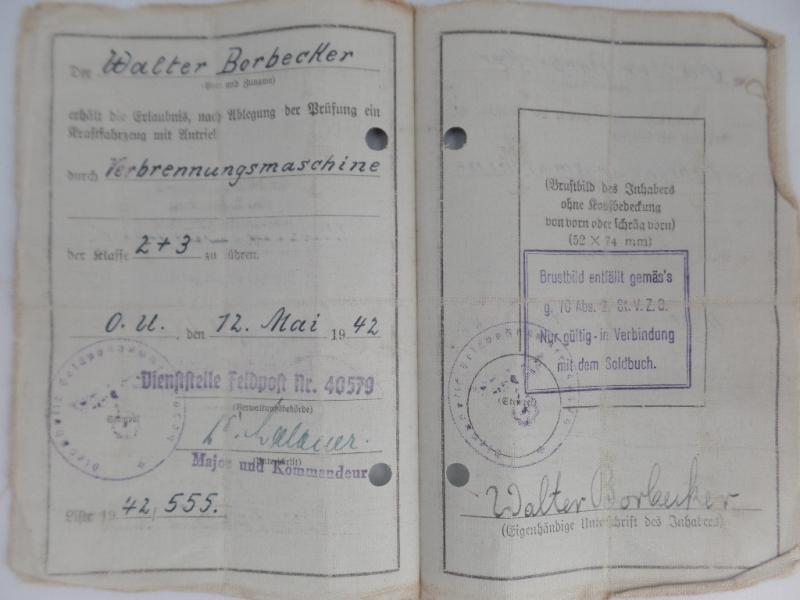 Der Walter Borbecker
(Vor- und Zuname)
erhält die Erlaubnis, nach Ablegung der Prüfung ein
Kraftfahrzeug mit Antrieb
durch Verbrennungsmaschine
der Klasse 2+3 zu führen.
O.U., den 12. Mai 1942
Dienststelle Feldpost Nr. 40579
(Verwaltungsbehörde)
(Stempel)
Major und Kommandeur
(Unterschrift)
Liste 1942, 555.
(Brustbild des Inhabers
ohne Kopfbedeckung
von vorn oder schräg vorn)
(52 × 74 mm)
Brustbild entfällt gemäs's
g. 70 Abs. 2. St.V.Z.O.
Nur gültig - in Verbindung
mit dem Soldbuch.
(Stempel)
Walter Borbecker
(Eigenhändige Unterschrift des Inhabers)